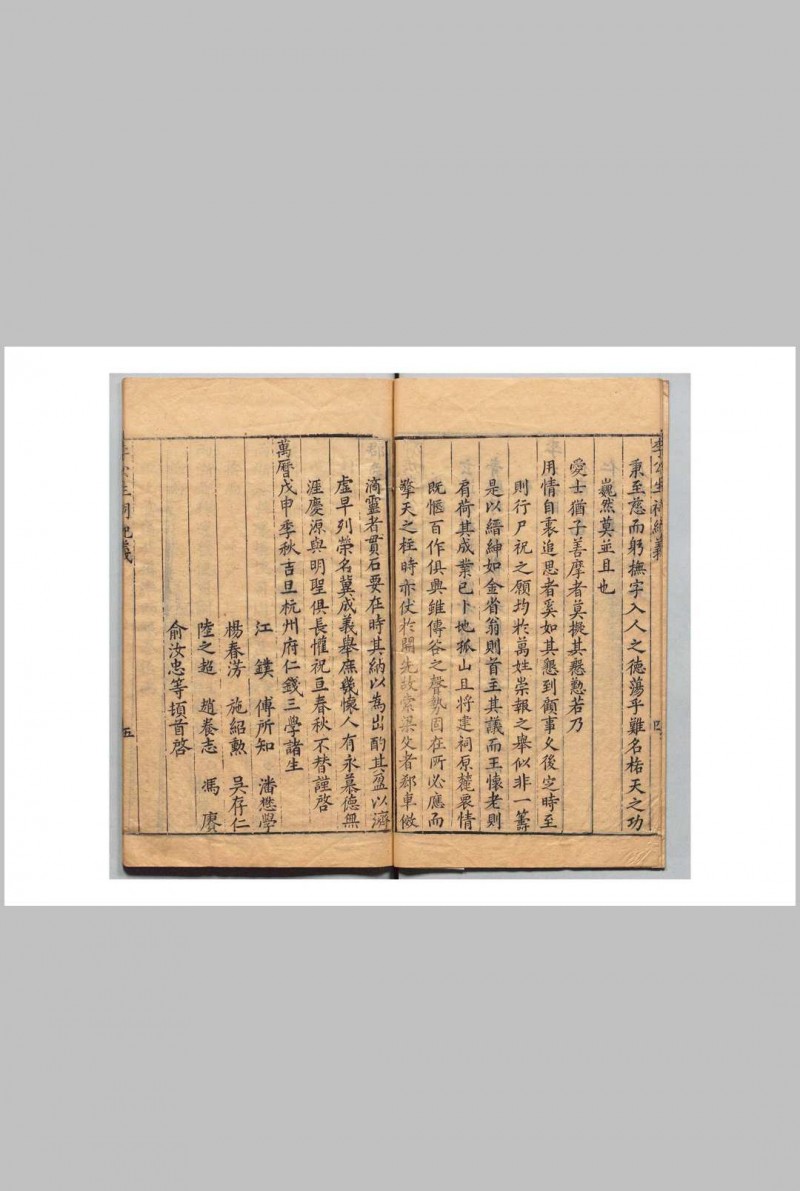 秉至慈而躬撫字入人之德蕩乎難名祐天之功
巍然莫並且也
愛士猶子善摩者莫擬其懇懃若乃
用情自衷追思者奚如其懇到顧事久後定時至
則行尸祝之願均於萬姓崇報之舉似非一籌
是以縉紳如金省翁則首主其議而王懷老則
肩荷其成業已卜地孤山且將建祠原麓眾情
既愜百作俱興雖傳谷之聲勢固在所必應而
擎天之柱時亦伏於開先故索梁父者郄車倣
滴靈者貫石要在時其納以為出酌其盈以濟
虛早列榮名冀成義舉庶幾懷人有永慕德無
涯慶源與明聖俱長懽祝亘春秋不替謹啓
萬曆戊申季秋吉旦杭州府仁錢三學諸生
江鏷 傅所知 潘懋學
楊春芳 施紹勲 吳存仁
陸之超 趙養志 馮賡
俞汝忠等頓首啓
五